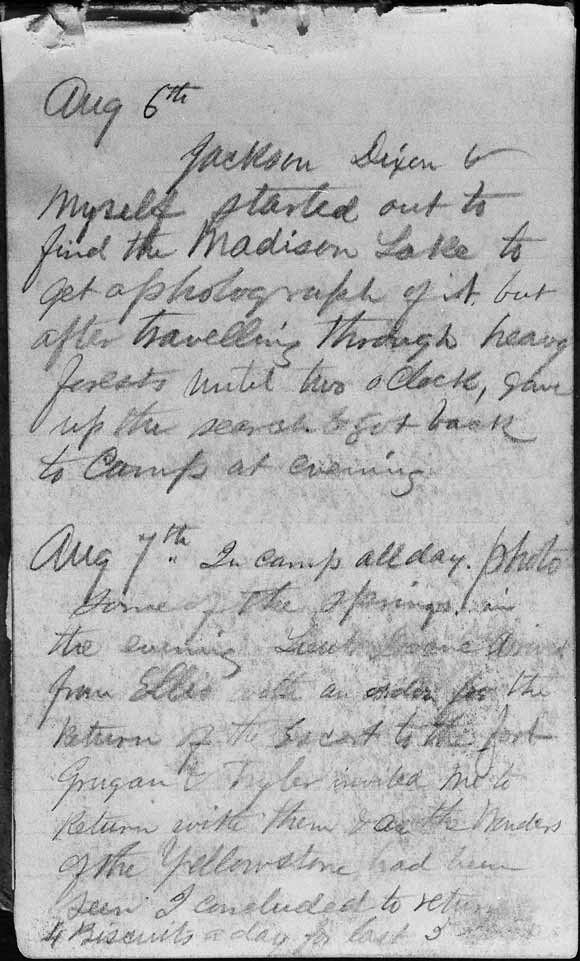 Aug 6th
Jackson Dixon &
Myself started out to
find the Madison Lake to
get a photograph of it, but
after travelling through heavy
forests until two oClock, gave
up the search & got back
to Camp at evening
Aug 7th In camp all day. photo
some of the springs. in
the evening Lieut Doane
from Ellis with an order for the
Return of the Escort to the fort
Grugan & Tyler invited me to
Return with them & as the Wonders
of the Yellowstone had been
seen I concluded to return
4 Biscuits a day for last 3